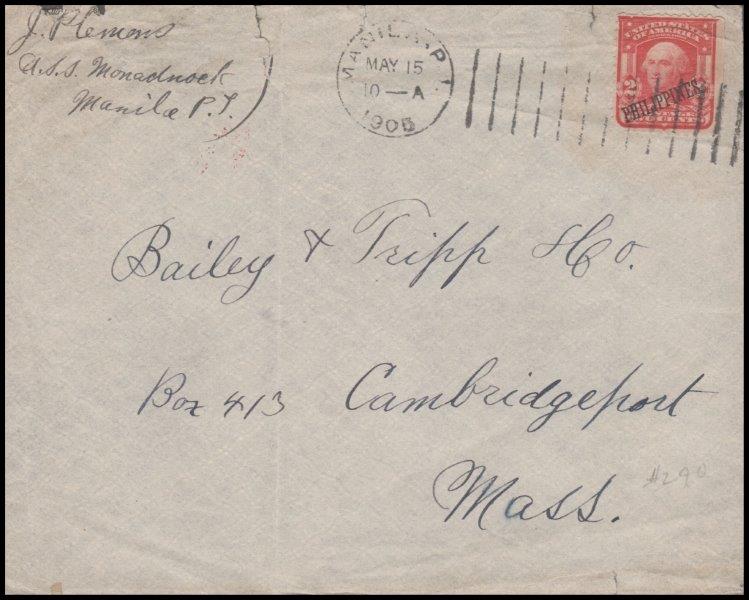 J. Plemons
U.S.S. Monadnock
Manila P.I.
MANILA, P.I.
MAY 15
10—A
1905
UNITED STATES
OF AMERICA
2
PHILIPPINES
Bailey & Tripp Co.
Box 413
Cambridgeport
Mass.
#290